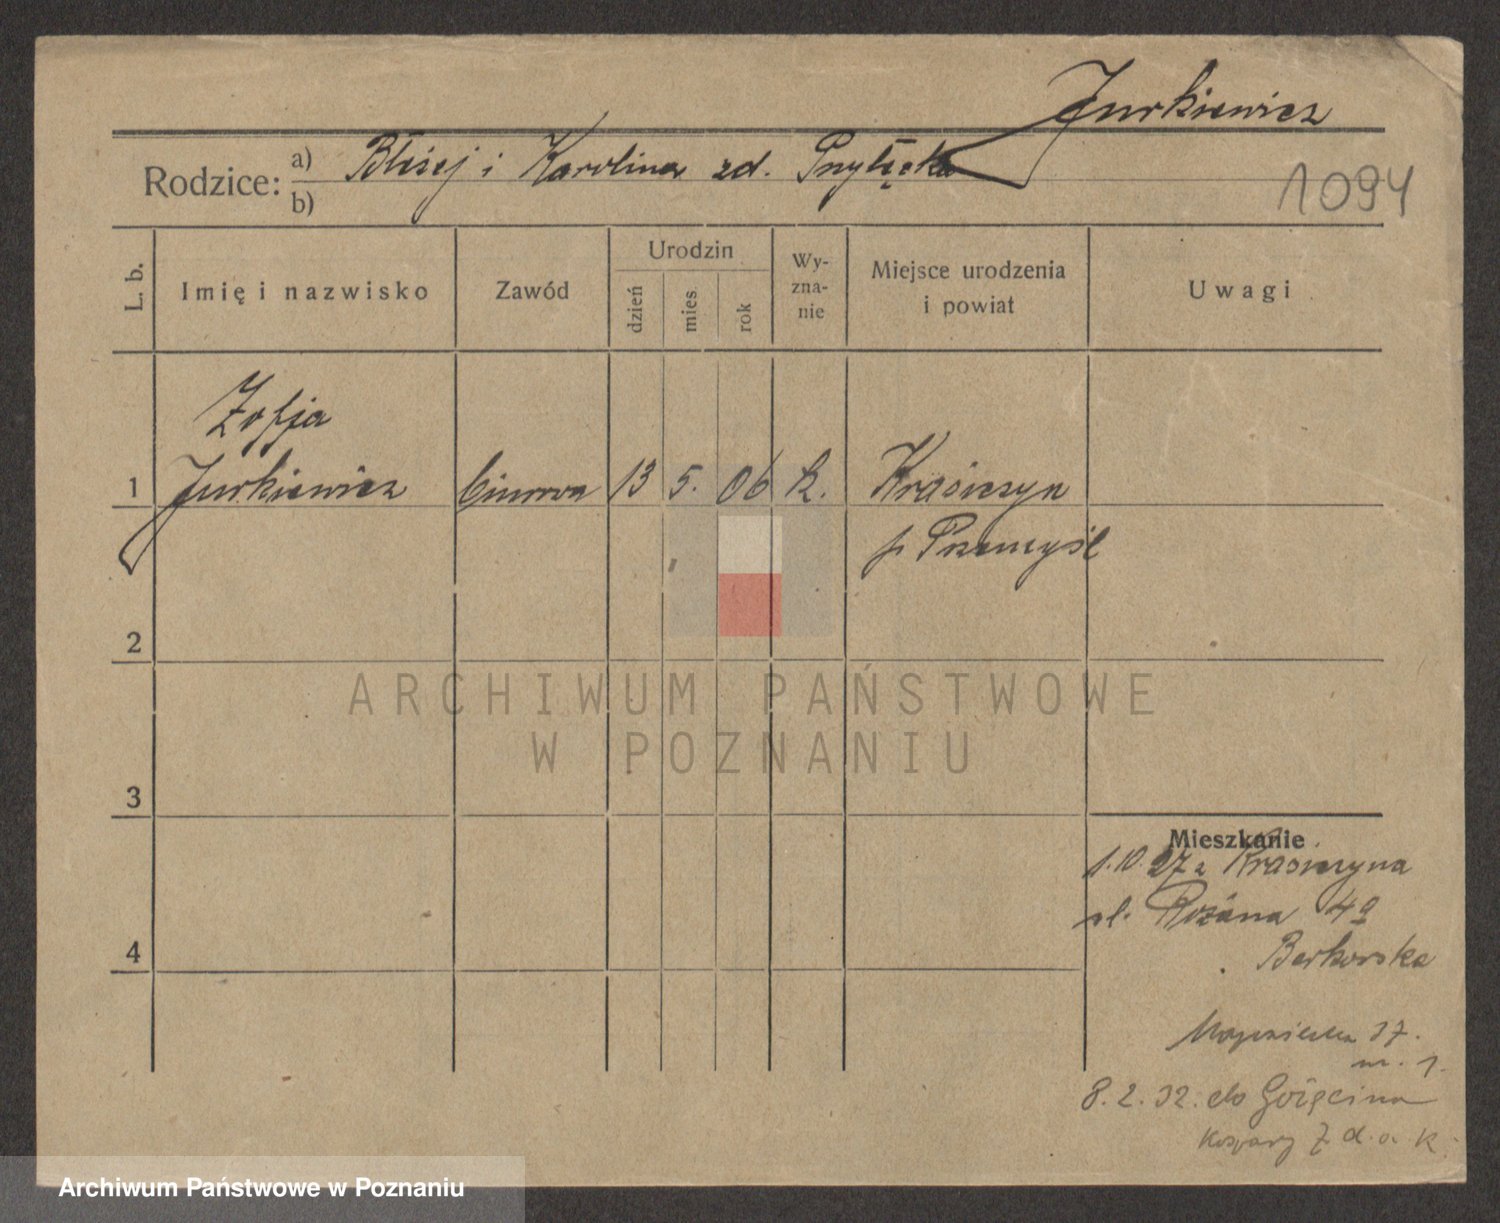 Jurkiewicz
Rodzice: a) Błażej i Karolina zd. Przyłęcka
b)
1094
L. b.
Imię i nazwisko
Zawód
Urodzin
dzień
mies
rok
Wy-
zna-
nie
Miejsce urodzenia
i powiat
Uwagi
Zofja
1 Jurkiewicz biurowa 13 5. 06 k. Krasiczyn
p Przemyśl
2
ARCHIWUM PAŃSTWOWE
W POZNANIU
3
Mieszkanie
1.10.27 z Krasiczyna
ul. Różana 4a
Berkowska
4
37.
m. 1.
8.2.32. do Golęcina
koszary 7 d. a. k.
Archiwum Państwowe w Poznaniu